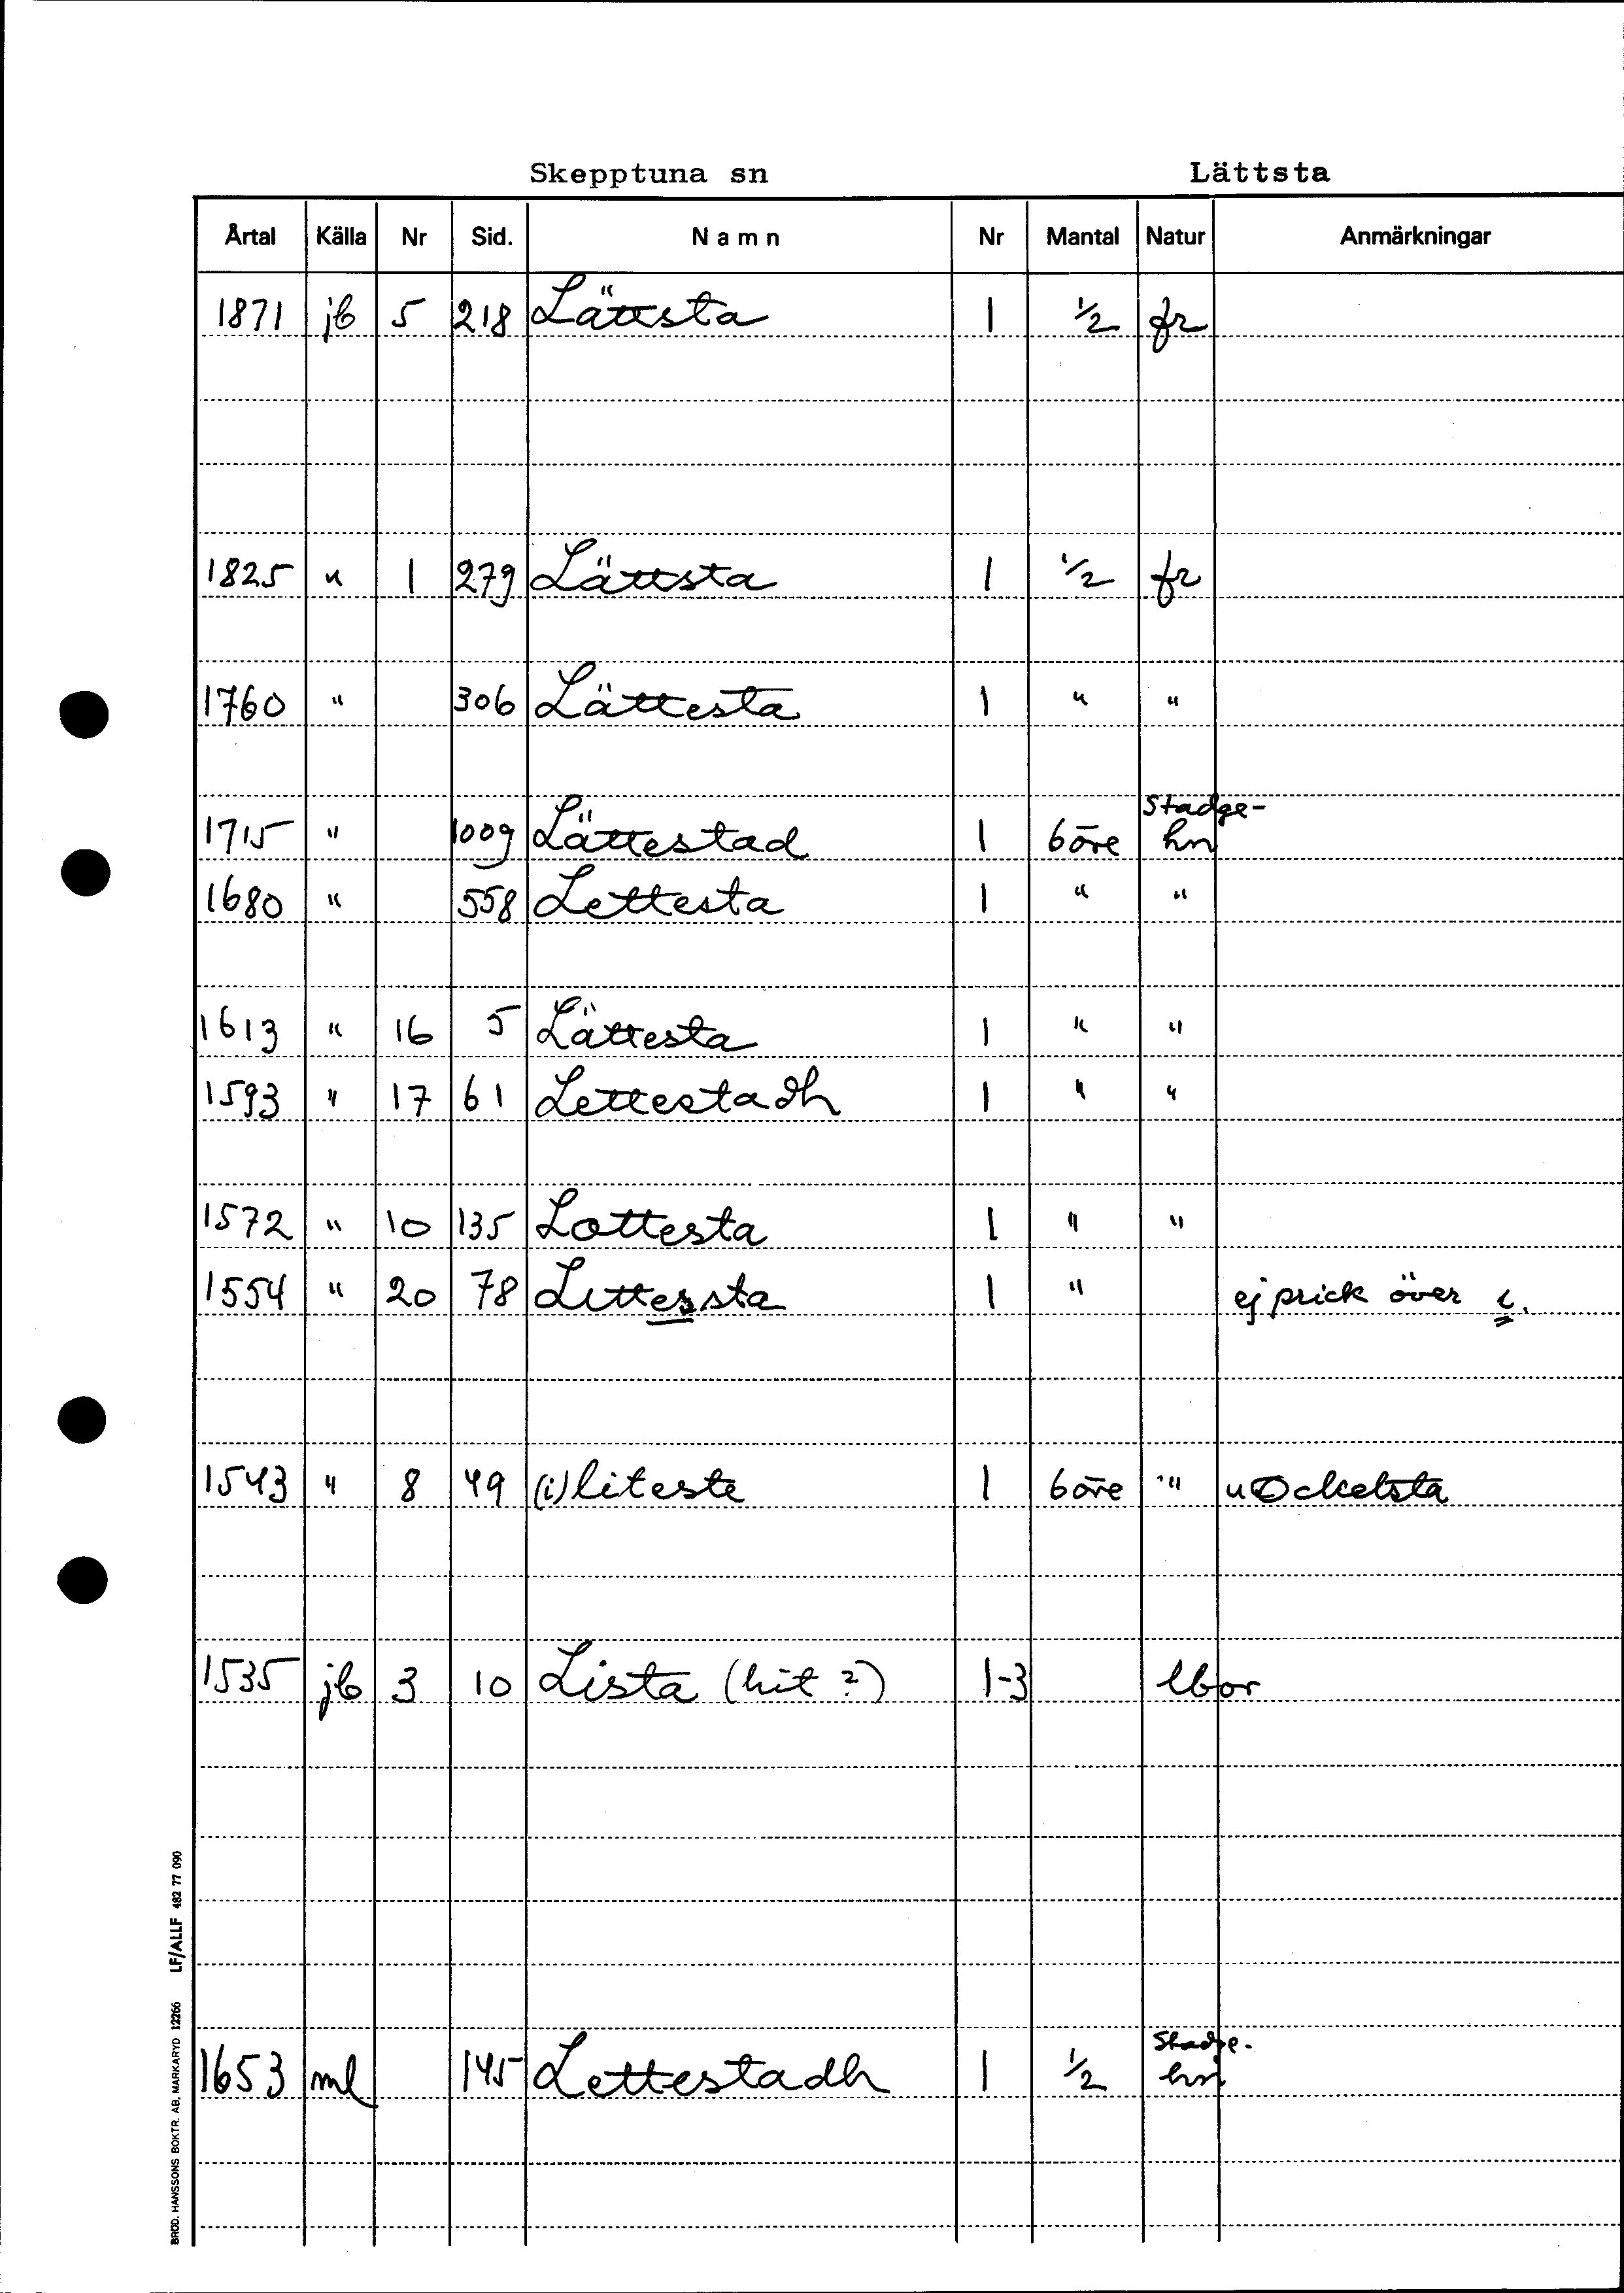 Skepptuna sn Lättsta
Årtal Källa Nr Sid. Namn Nr Mantal Natur Anmärkningar
1871 jb 5 218 Lättsta 1 1/2 fr
1825 " 1 279 Lättsta 1 1/2 fr
1760 " 306 Lättesta 1 " "
Stadge-
1715 " 1009 Lättestad 1 6 öre hn
1680 " 558 Lettesta 1 " "
1613 " 16 5 Lättesta 1 " "
1593 " 17 61 Lettestadh 1 " "
1572 " 10 135 Lottesta 1 " "
1554 " 20 78 Littessta 1 " ej prick över i.
1543 " 8 49 (i) liteste 1 6 öre " u Ockelsta
1535 jb 3 10 Lista (hit ?) 1-3 lbor
Stadge-
1653 ml 145 Lettestadh 1 1/2 hn
BROD. HANSSONS BOKTR. AB, MARKARYD 12266 LF/ALLF 482 77 090